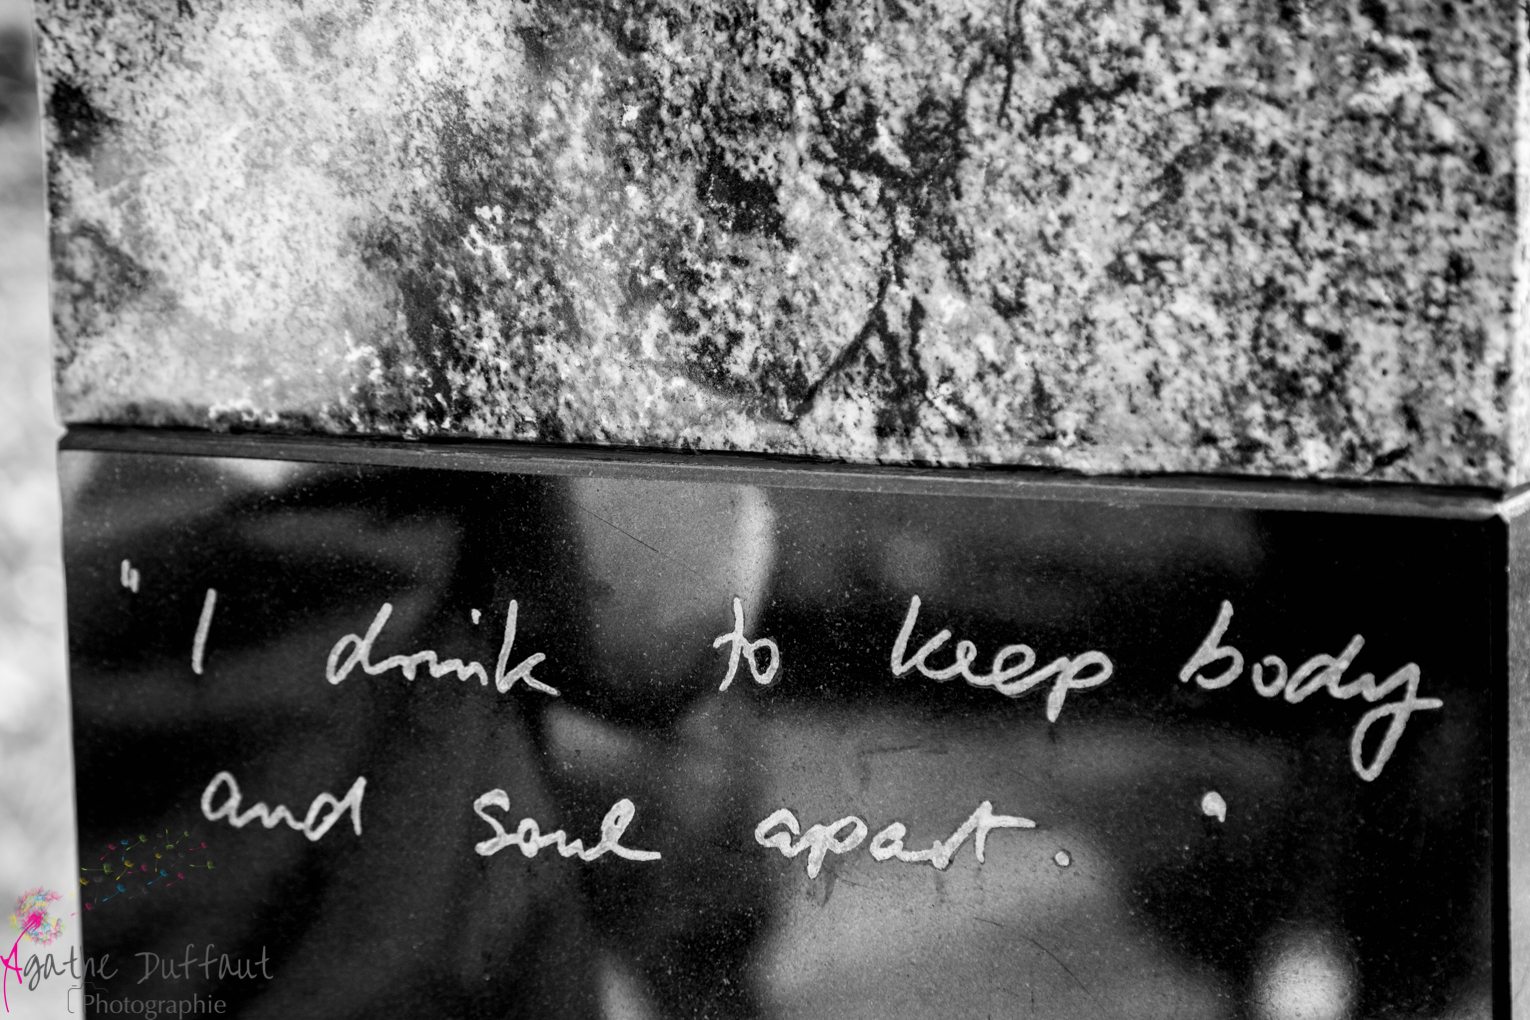 " I drink to keep body
and soul apart. "
Agathe Duffaut
Photographie